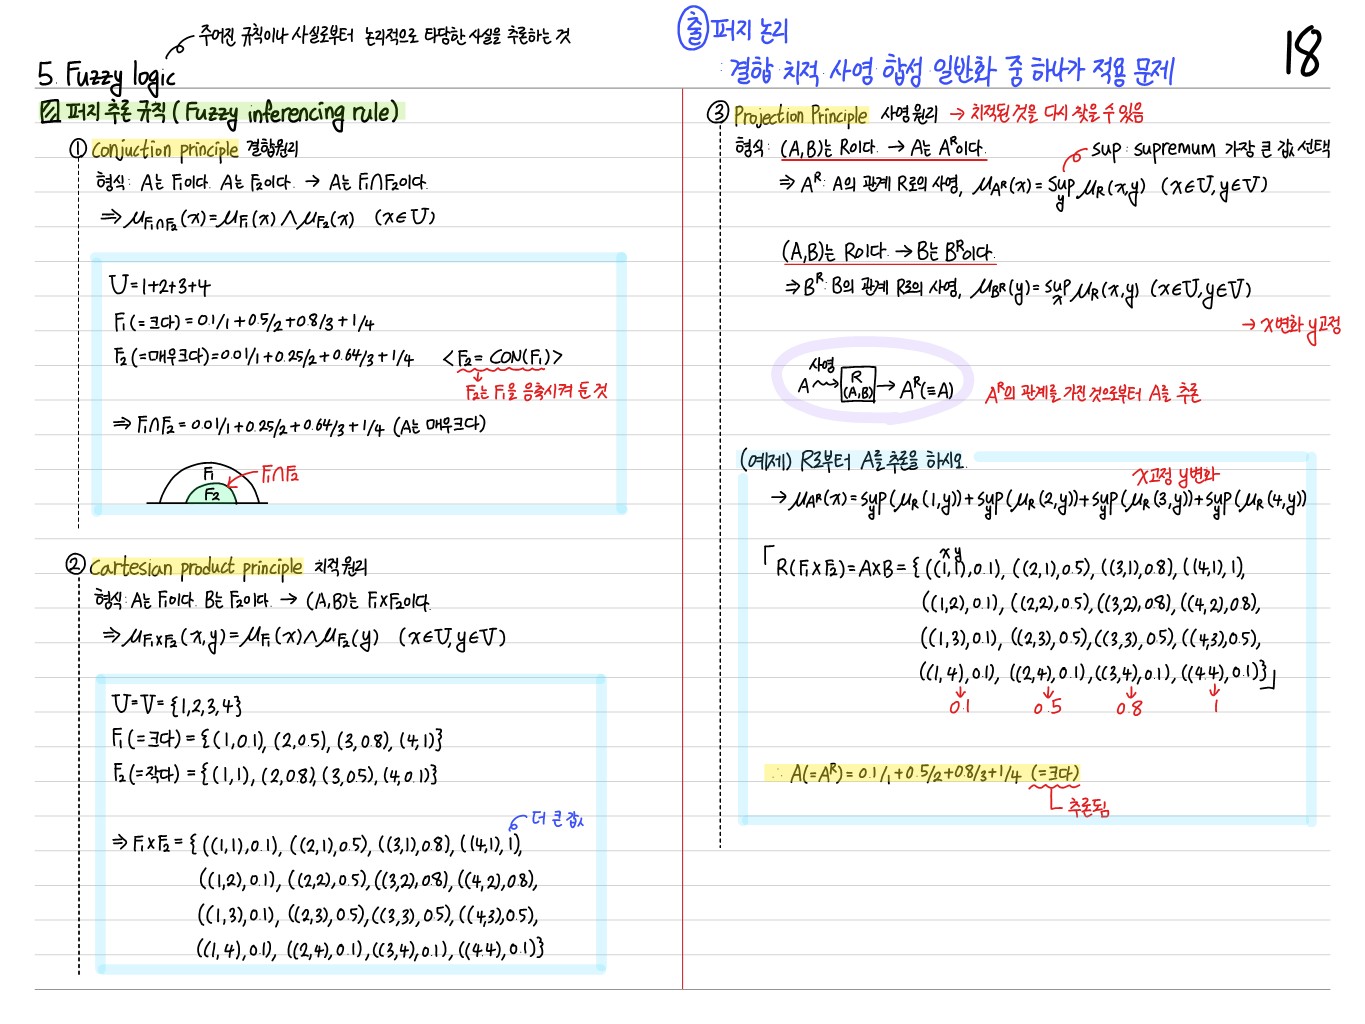 주어진 규칙이나 사실로부터 논리적으로 타당한 사실을 추론하는 것
5. Fuzzy logic
퍼지 추론 규칙 (Fuzzy inferencing rule)
① Conjuction principle 결합원리
형식: A는 F₁이다. A는 F₂이다. → A는 F₁∩F₂이다.
⇒ μF₁∩F₂(x)=μF₁(x)∧μF₂(x) (x∈U)
U=1+2+3+4
F₁(=크다)=0.1/1+0.5/2+0.8/3+1/4
F₂(=매우크다)=0.01/1+0.25/2+0.64/3+1/4 <F₂=CON(F₁)>
F₂는 F₁을 응축시켜 둔 것
⇒ F₁∩F₂=0.01/1+0.25/2+0.64/3+1/4 (A는 매우크다)
F₁
F₂
F₁∩F₂
② Cartesian product principle 치적원리
형식: A는 F₁이다. B는 F₂이다. → (A,B)는 F₁×F₂이다.
⇒ μF₁×F₂(x,y)=μF₁(x)∧μF₂(y) (x∈U, y∈V)
U=V={1,2,3,4}
F₁(=크다)={(1,0.1), (2,0.5), (3,0.8), (4,1)}
F₂(=작다)={(1,1), (2,0.8), (3,0.5), (4,0.1)}
더 큰 값
⇒ F₁×F₂={((1,1),0.1), ((2,1),0.5), ((3,1),0.8), ((4,1),1),
((1,2),0.1), ((2,2),0.5), ((3,2),0.8), ((4,2),0.8),
((1,3),0.1), ((2,3),0.5), ((3,3),0.5), ((4,3),0.5),
((1,4),0.1), ((2,4),0.1), ((3,4),0.1), ((4.4),0.1)}
출 퍼지 논리
: 결합 치적 사영 합성 일반화 중 하나가 적용 문제
18
③ Projection Principle 사영원리 → 치적된 것을 다시 찾을 수 있음
형식: (A,B)는 R이다. → A는 Aᴿ이다.
sup: supremum 가장 큰 값 선택
⇒ Aᴿ: A의 관계 R로의 사영, μAᴿ(x)=sup y μR(x,y) (x∈U, y∈V)
(A,B)는 R이다. → B는 Bᴿ이다.
⇒ Bᴿ: B의 관계 R로의 사영, μBᴿ(y)=sup x μR(x,y) (x∈U, y∈V)
→ x변화 y고정
사영
A → R (A,B) → Aᴿ(≡A)
Aᴿ의 관계를 가진 것으로부터 A를 추론
(예제) R로부터 A를 추론을 하시오.
x고정 y변화
→ μAᴿ(x)=sup y(μR(1,y))+sup y(μR(2,y))+sup y(μR(3,y))+sup y(μR(4,y))
x y
「R(F₁×F₂)=A×B={((1,1),0.1), ((2,1),0.5), ((3,1),0.8), ((4,1),1),
((1,2),0.1), ((2,2),0.5), ((3,2),0.8), ((4,2),0.8),
((1,3),0.1), ((2,3),0.5), ((3,3),0.5), ((4,3),0.5),
((1,4),0.1), ((2,4),0.1), ((3,4),0.1), ((4.4),0.1)}」
0.1 0.5 0.8 1
∴ A(=Aᴿ)=0.1/1+0.5/2+0.8/3+1/4 (=크다)
추론됨